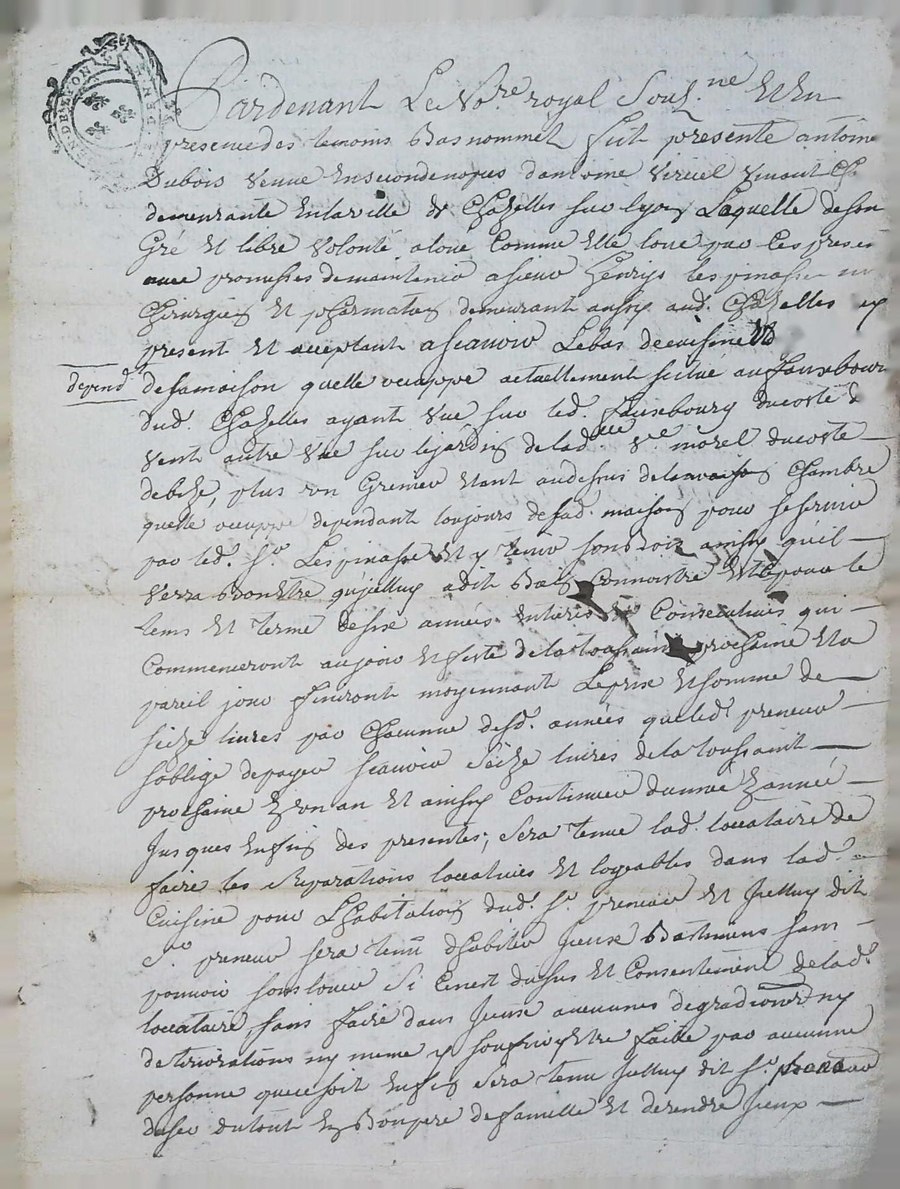 GEN. DE LYON
Pardevant Le No.re royal Sous.né Et En
presence des temoins bas nommés fut presente antoinette
Dubois veuve en seconde nopces d'antoine viricel vivant
demeurante en la ville de Chazelles sur lyon Laquelle de son
Gré Et libre volonté a loué Comme Elle loue par les presentes
avec promesses de maintenir a sieur Lespinasse
Chirurgien Et pharmatien demeurant aussy aud. Chazelles icy
present Et acceptant a scavoir Le bas de cuisine
depend. de sa maison quelle occuppe actuellement scitué au fauxbourg
dud. Chazelles ayant vue sur led. fauxbourg du coté de
vent autre vue sur le jardin de lad. v.e morel du coté
de bize, plus un Grenier Etant au dessus de la Chambre
quelle occuppe dependant toujours de sad. maison pour se servir
par led. S.r Lespinasse Et y tenir son bois ainsy qu'il
verra bon Etre qu'jcelluy a dit bien Connoitre Et ce pour le
tems Et terme de six années Entieres Et Consecutives qui
Commenceront au jour Et feste de la toussaint prochaine Et a
pareil jour finiront moyennant Le prix Et somme de
seize livres par Chacunne desd. années que led. preneur
s'oblige de payer scavoir seize livres de la toussaint
prochaine En un an Et ainsy Continuer d'année En année
Jusques En fin des presentes; sera tenue lad. locataire de
faire les Reparations locatives Et logeables dans lad.
Cuisine pour L'habitation dud. S.r preneur Et Jcelluy dit
S.r preneur sera tenu d'habiter Jceux Batimens sans
pouvoir souslouer si Cenest du sus Et Consentement de lad.
locataire, sans faire dans Jceux aucunnes degradions ny
deteriorations ny meme y souffrir Etre faite par aucunne
personne que ce soit Enfin sera tenu Jcelluy dit S.r preneur
du tout En Bon pere de famille Et de rendre Jceux